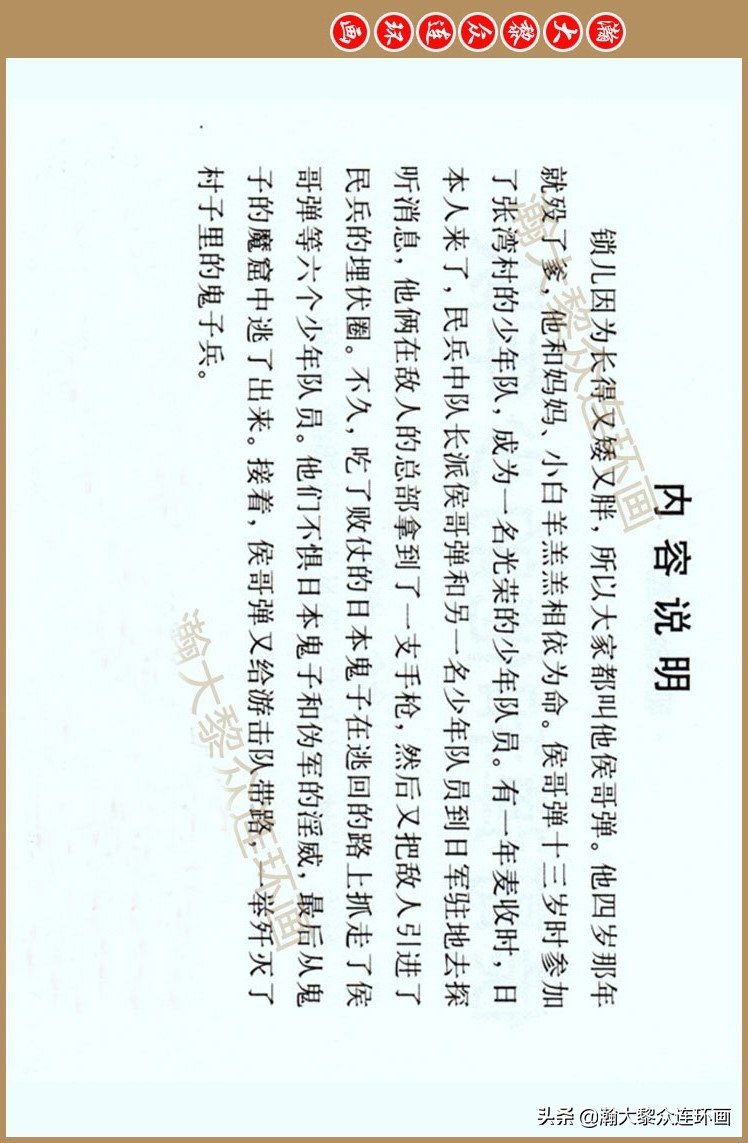 瀚大黎众连环画
内容说明
锁儿因为长得又矮又胖，所以大家都叫他侯哥弹。他四岁那年
就殁了爹，他和妈妈、小白羊羔羔相依为命。侯哥弹十三岁时参加
了张湾村的少年队，成为一名光荣的少年队员。有一年麦收时，日
本人来了，民兵中队长派侯哥弹和另一名少年队员到日军驻地去探
听消息，他俩在敌人的总部拿到了一支手枪，然后又把敌人引进了
民兵的埋伏圈。不久，吃了败仗的日本鬼子在逃回的路上抓走了侯
哥弹等六个少年队员。他们不惧日本鬼子和伪军的淫威，最后从鬼
子的魔窟中逃了出来。接着，侯哥弹又给游击队带路，一举歼灭了
村子里的鬼子兵。
瀚大黎众连环画
瀚大黎众连环画
头条 @瀚大黎众连环画